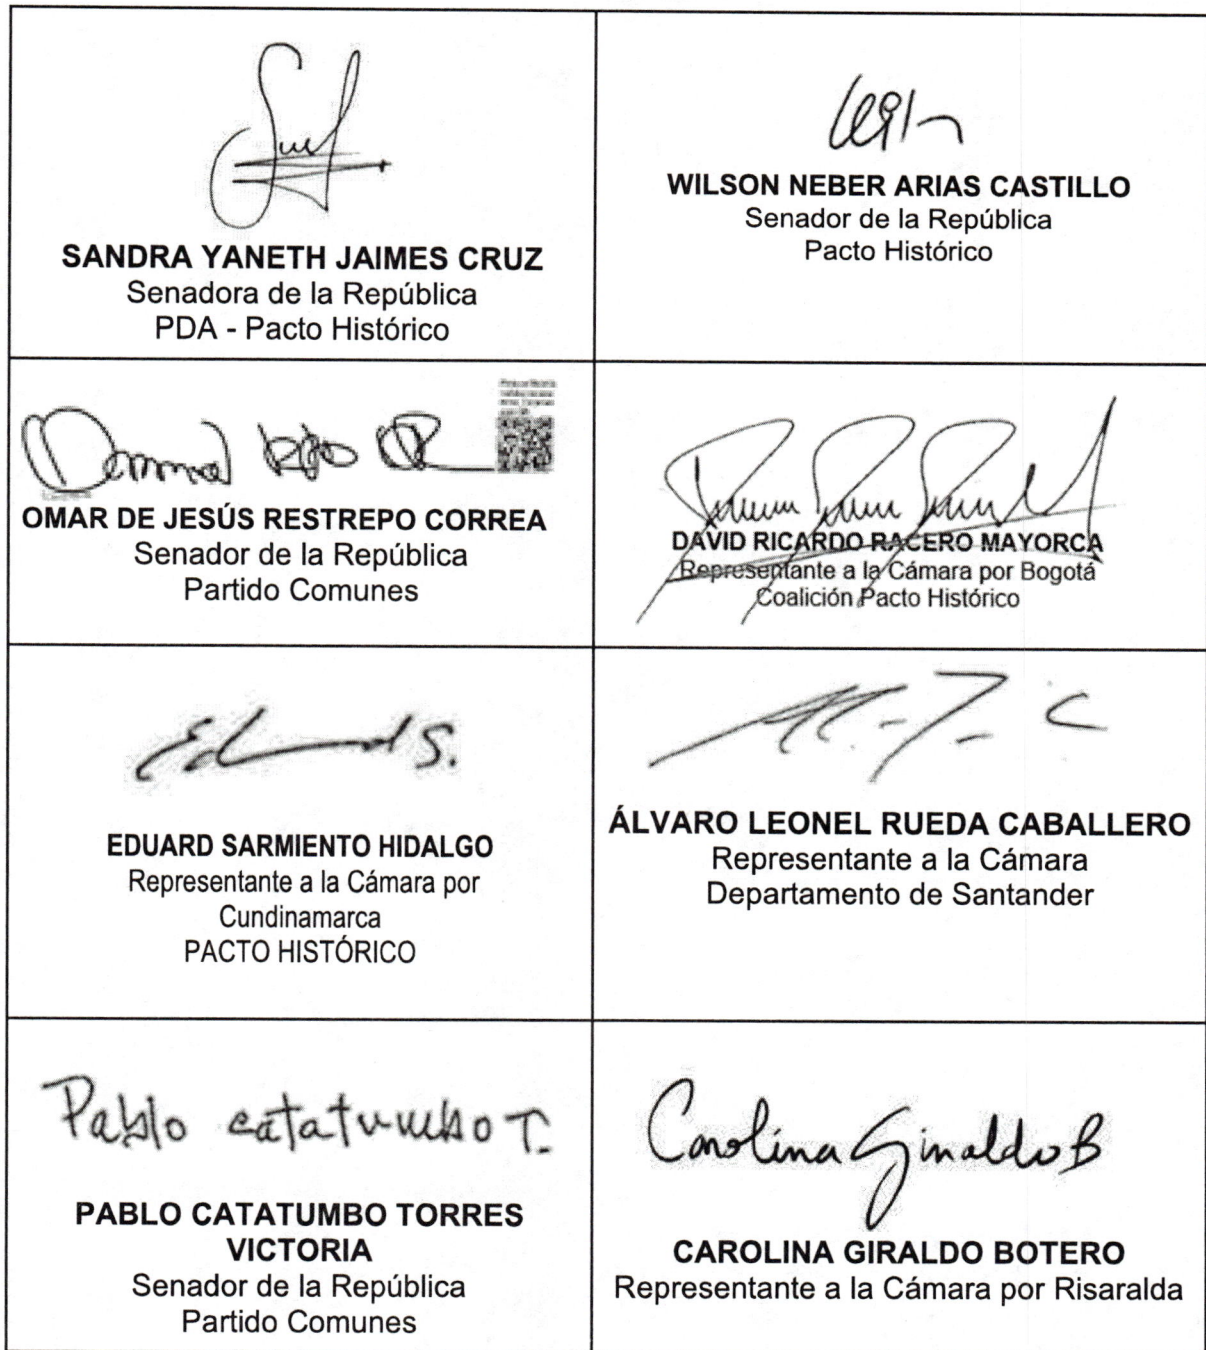 SANDRA YANETH JAIMES CRUZ
Senadora de la República
PDA - Pacto Histórico
WILSON NEBER ARIAS CASTILLO
Senador de la República
Pacto Histórico
OMAR DE JESÚS RESTREPO CORREA
Senador de la República
Partido Comunes
DAVID RICARDO RACERO MAYORCA
Representante a la Cámara por Bogotá
Coalición Pacto Histórico
EduardS.
EDUARD SARMIENTO HIDALGO
Representante a la Cámara por
Cundinamarca
PACTO HISTÓRICO
ÁLVARO LEONEL RUEDA CABALLERO
Representante a la Cámara
Departamento de Santander
Pablo catatumbo T.
PABLO CATATUMBO TORRES
VICTORIA
Senador de la República
Partido Comunes
Carolina Giraldo B
CAROLINA GIRALDO BOTERO
Representante a la Cámara por Risaralda